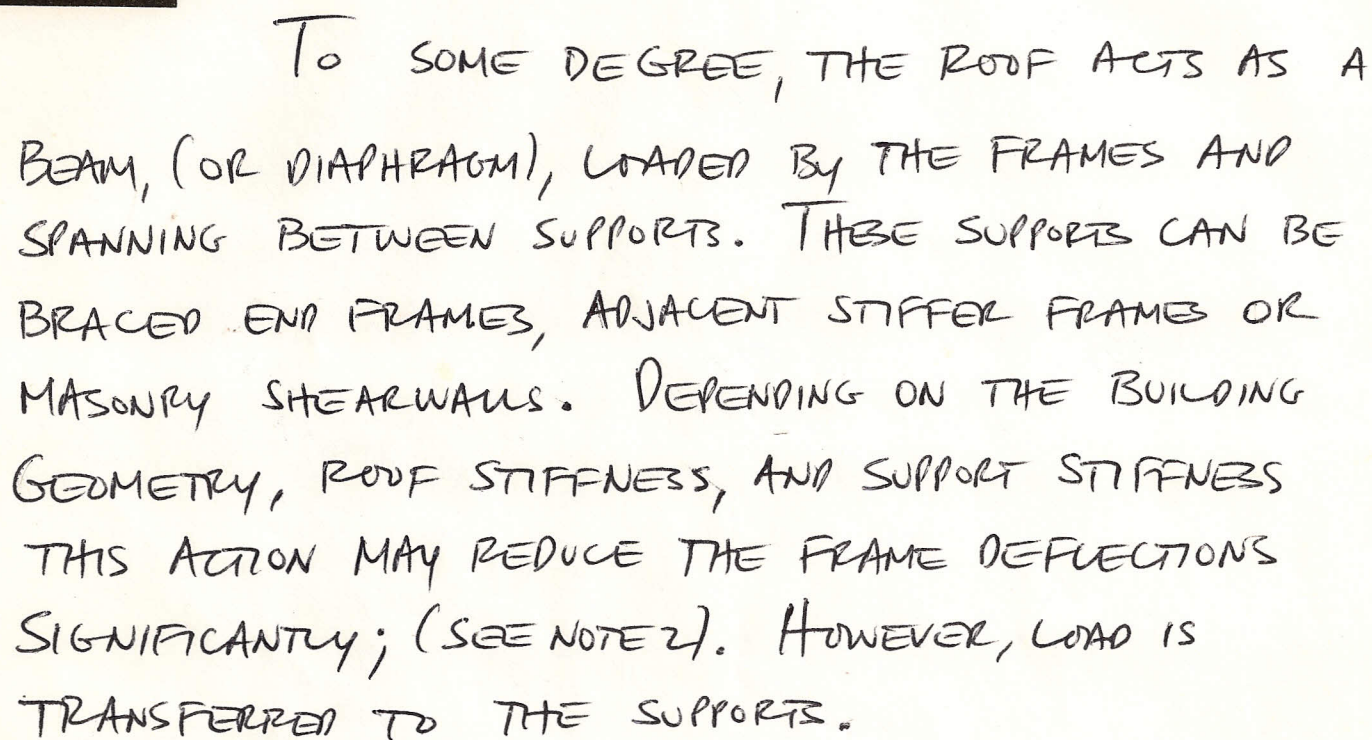 To SOME DEGREE, THE ROOF ACTS AS A
BEAM, (OR DIAPHRAGM), LOADED By THE FRAMES AND
SPANNING BETWEEN SUPPORTS. THESE SUPPORTS CAN BE
BRACED END FRAMES, ADJACENT STIFFER FRAMES OR
MASONRY SHEARWALLS. DEPENDING ON THE BUILDING
GEOMETRY, ROOF STIFFNESS, AND SUPPORT STIFFNESS
THIS ACTION MAY REDUCE THE FRAME DEFLECTIONS
SIGNIFICANTLY; (SEE NOTE 2). HOWEVER, LOAD IS
TRANSFERRED TO THE SUPPORTS.